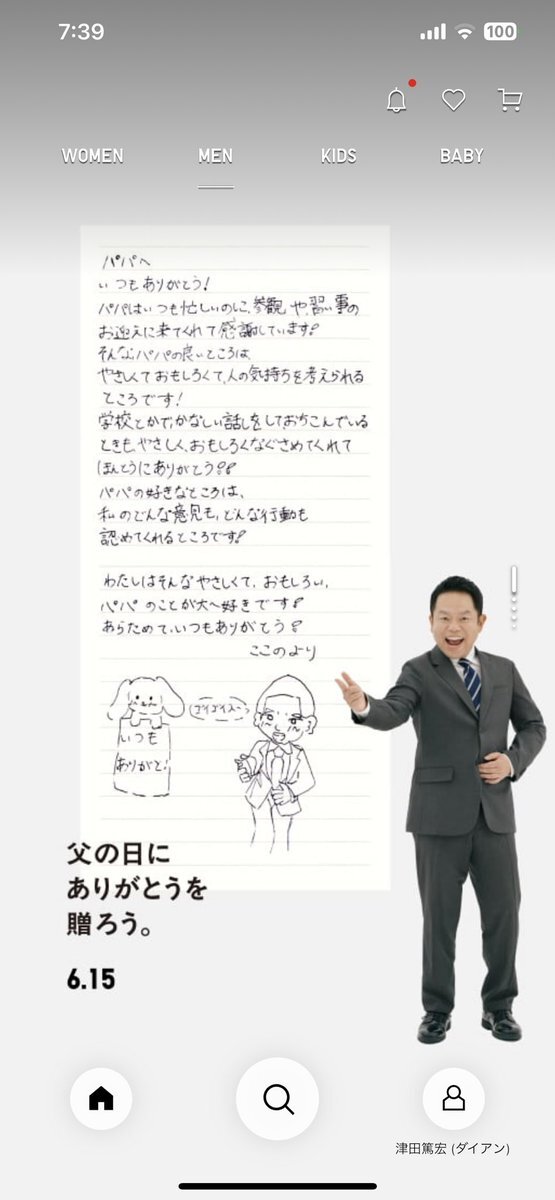 7:39
100
WOMEN MEN KIDS BABY
パパへ
いつもありがとう!
パパはいつも忙しいのに、参観や、習い事の
お迎えに来てくれて感謝しています!
そんなパパの良いところは、
やさしくておもしろくて、人の気持ちを考えられる
ところです!
学校とかで、かなしい話しをして、おちこんでいる
ときも、やさしく、おもしろくなぐさめてくれて
ほんとうにありがとう!!
パパの好きなところは、
私のどんな意見も、どんな行動も
認めてくれるところです!
わたしはそんなやさしくて、おもしろい、
パパのことが大〜好きです!
あらためて、いつもありがとう!
ここのより
いつも
ありがと!
父の日に
ありがとうを
贈ろう。
6.15
津田篤宏 (ダイアン)